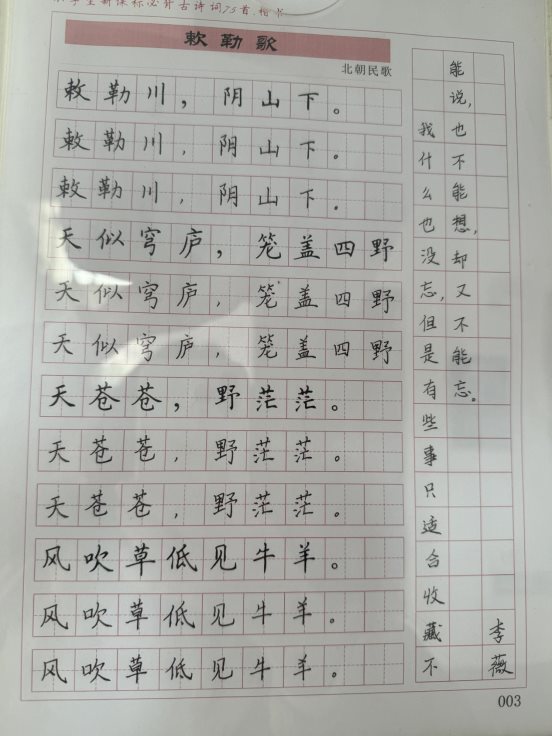 小学生新课标必背古诗词75首.楷书
敕勒歌
北朝民歌
敕勒川，阴山下。
敕勒川，阴山下。
敕勒川，阴山下。
天似穹庐，笼盖四野
天似穹庐，笼盖四野
天似穹庐，笼盖四野
天苍苍，野茫茫。
天苍苍，野茫茫。
天苍苍，野茫茫。
风吹草低见牛羊。
风吹草低见牛羊。
风吹草低见牛羊。
我什么也没忘，但是有些事只适合收藏不
能说，也不能想，却又不能忘。
李薇
003